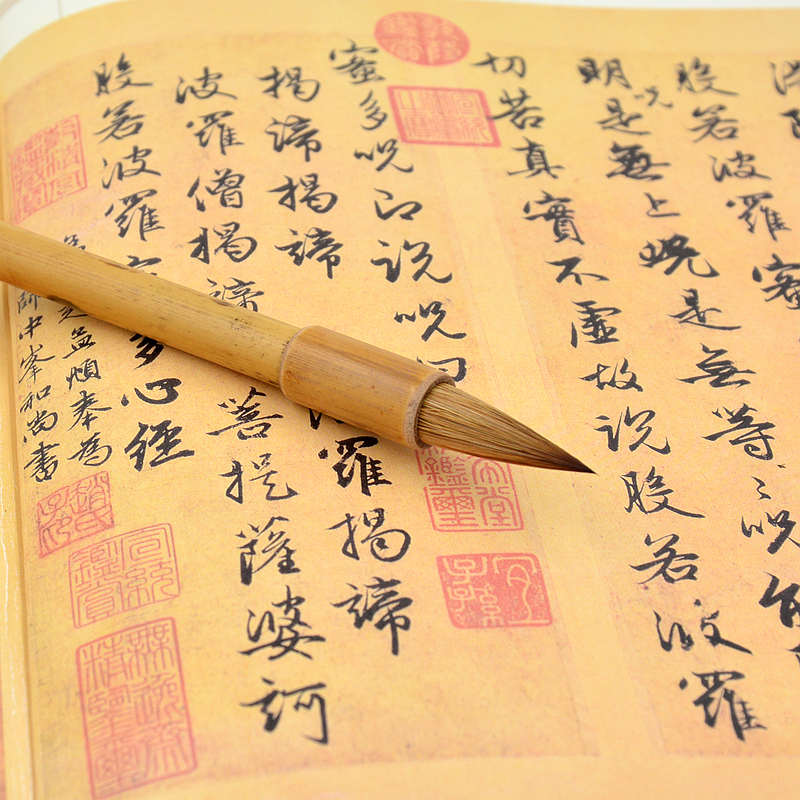 般若波羅蜜
明咒是無上咒是無等〻咒能
切苦真實不虛故說般若波羅
蜜多咒即說咒曰
揭諦揭諦 波羅揭諦
波羅僧揭諦 菩提薩婆訶
般若波羅蜜多心經
孟頫奉為
師中峯和尚書